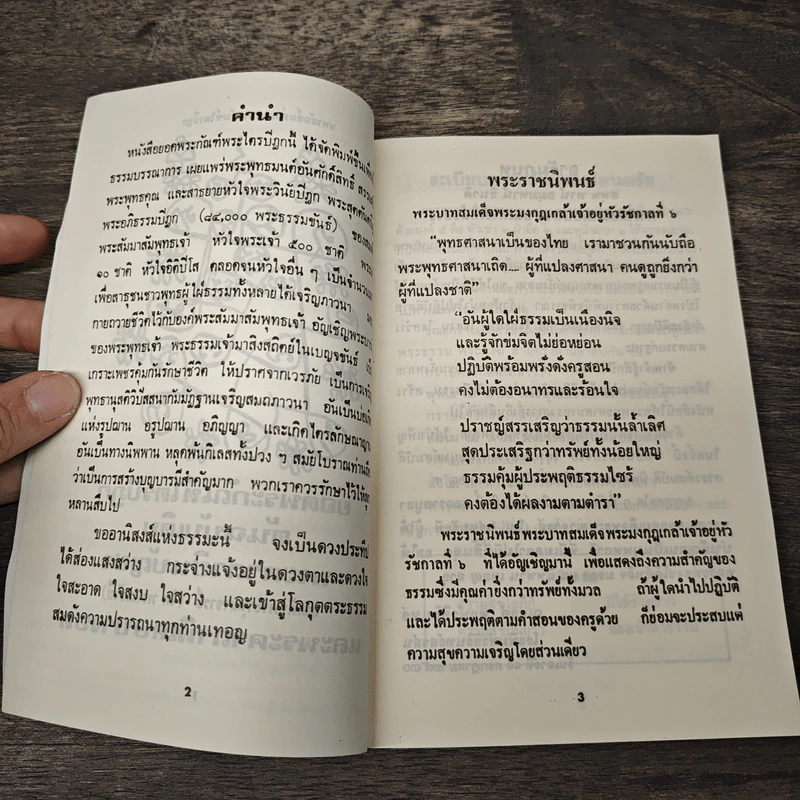 คำนำ
หนังสือยอดพระกัณฑ์พระไตรปิฎกนี้ ได้จัดพิมพ์ขึ้นเพื่อ
ธรรมบรรณาการ เผยแพร่พระพุทธมนต์อันศักดิ์สิทธิ์
พระพุทธคุณ และสาธยายหัวใจพระวินัยปิฎก พระสุตตันตปิฎก
พระอภิธรรมปิฎก (๘๔,๐๐๐ พระธรรมขันธ์)
พระสัมมาสัมพุทธเจ้า หัวใจพระเจ้า ๕๐๐ ชาติ
๑๐ ชาติ หัวใจอิติปิโส ตลอดจนหัวใจอื่น ๆ เป็นจำนวนมาก
เพื่อสาธุชนชาวพุทธผู้ใฝ่ธรรมทั้งหลายได้เจริญภาวนา
กายถวายชีวิตไว้กับองค์พระสัมมาสัมพุทธเจ้า อัญเชิญพระบารมี
ของพระพุทธเจ้า พระธรรมเจ้ามาสิงสถิตย์ในเบญจขันธ์
เกราะเพชรคุ้มกันรักษาชีวิต ให้ปราศจากเวรภัย เป็นการเจริญ
พุทธานุสติวิปัสสนากัมมัฏฐานเจริญสมถภาวนา อันเป็นบ่อเกิด
แห่งรูปฌาน อรูปฌาน อภิญญา และเกิดไตรลักษณญาณ
อันเป็นทางนิพพาน หลุดพ้นกิเลสทั้งปวง ฯ สมัยโบราณท่านถือ
ว่าเป็นการสร้างบุญบารมีสำคัญมาก พวกเราควรรักษาไว้ให้ลูก
หลานสืบไป
ขออานิสงส์แห่งธรรมะนี้ จงเป็นดวงประทีป
ได้ส่องแสงสว่าง กระจ่างแจ้งอยู่ในดวงตาและดวงใจ
ใจสะอาด ใจสงบ ใจสว่าง และเข้าสู่โลกุตตระธรรม
สมดังความปรารถนาทุกท่านเทอญ
2
พระราชนิพนธ์
พระบาทสมเด็จพระมงกุฎเกล้าเจ้าอยู่หัวรัชกาลที่ ๖
"พุทธศาสนาเป็นของไทย เรามาชวนกันนับถือ
พระพุทธศาสนาเถิด.... ผู้ที่แปลงศาสนา คนดูถูกยิ่งกว่า
ผู้ที่แปลงชาติ"
"อันผู้ใดใฝ่ธรรมเป็นเนืองนิจ
และรู้จักข่มจิตไม่ย่อหย่อน
ปฏิบัติพร้อมพรั่งดั่งครูสอน
คงไม่ต้องอนาทรและร้อนใจ
ปราชญ์สรรเสริญว่าธรรมนั้นล้ำเลิศ
สุดประเสริฐกว่าทรัพย์ทั้งน้อยใหญ่
ธรรมคุ้มผู้ประพฤติธรรมไซร้
คงต้องได้ผลงามตามตำรา"
พระราชนิพนธ์พระบาทสมเด็จพระมงกุฎเกล้าเจ้าอยู่หัว
รัชกาลที่ ๖ ที่ได้อัญเชิญมานี้ เพื่อแสดงถึงความสำคัญของ
ธรรมซึ่งมีคุณค่ายิ่งกว่าทรัพย์ทั้งมวล ถ้าผู้ใดนำไปปฏิบัติ
และได้ประพฤติตามคำสอนของครูด้วย ก็ย่อมจะประสบแต่
ความสุขความเจริญโดยส่วนเดียว
3